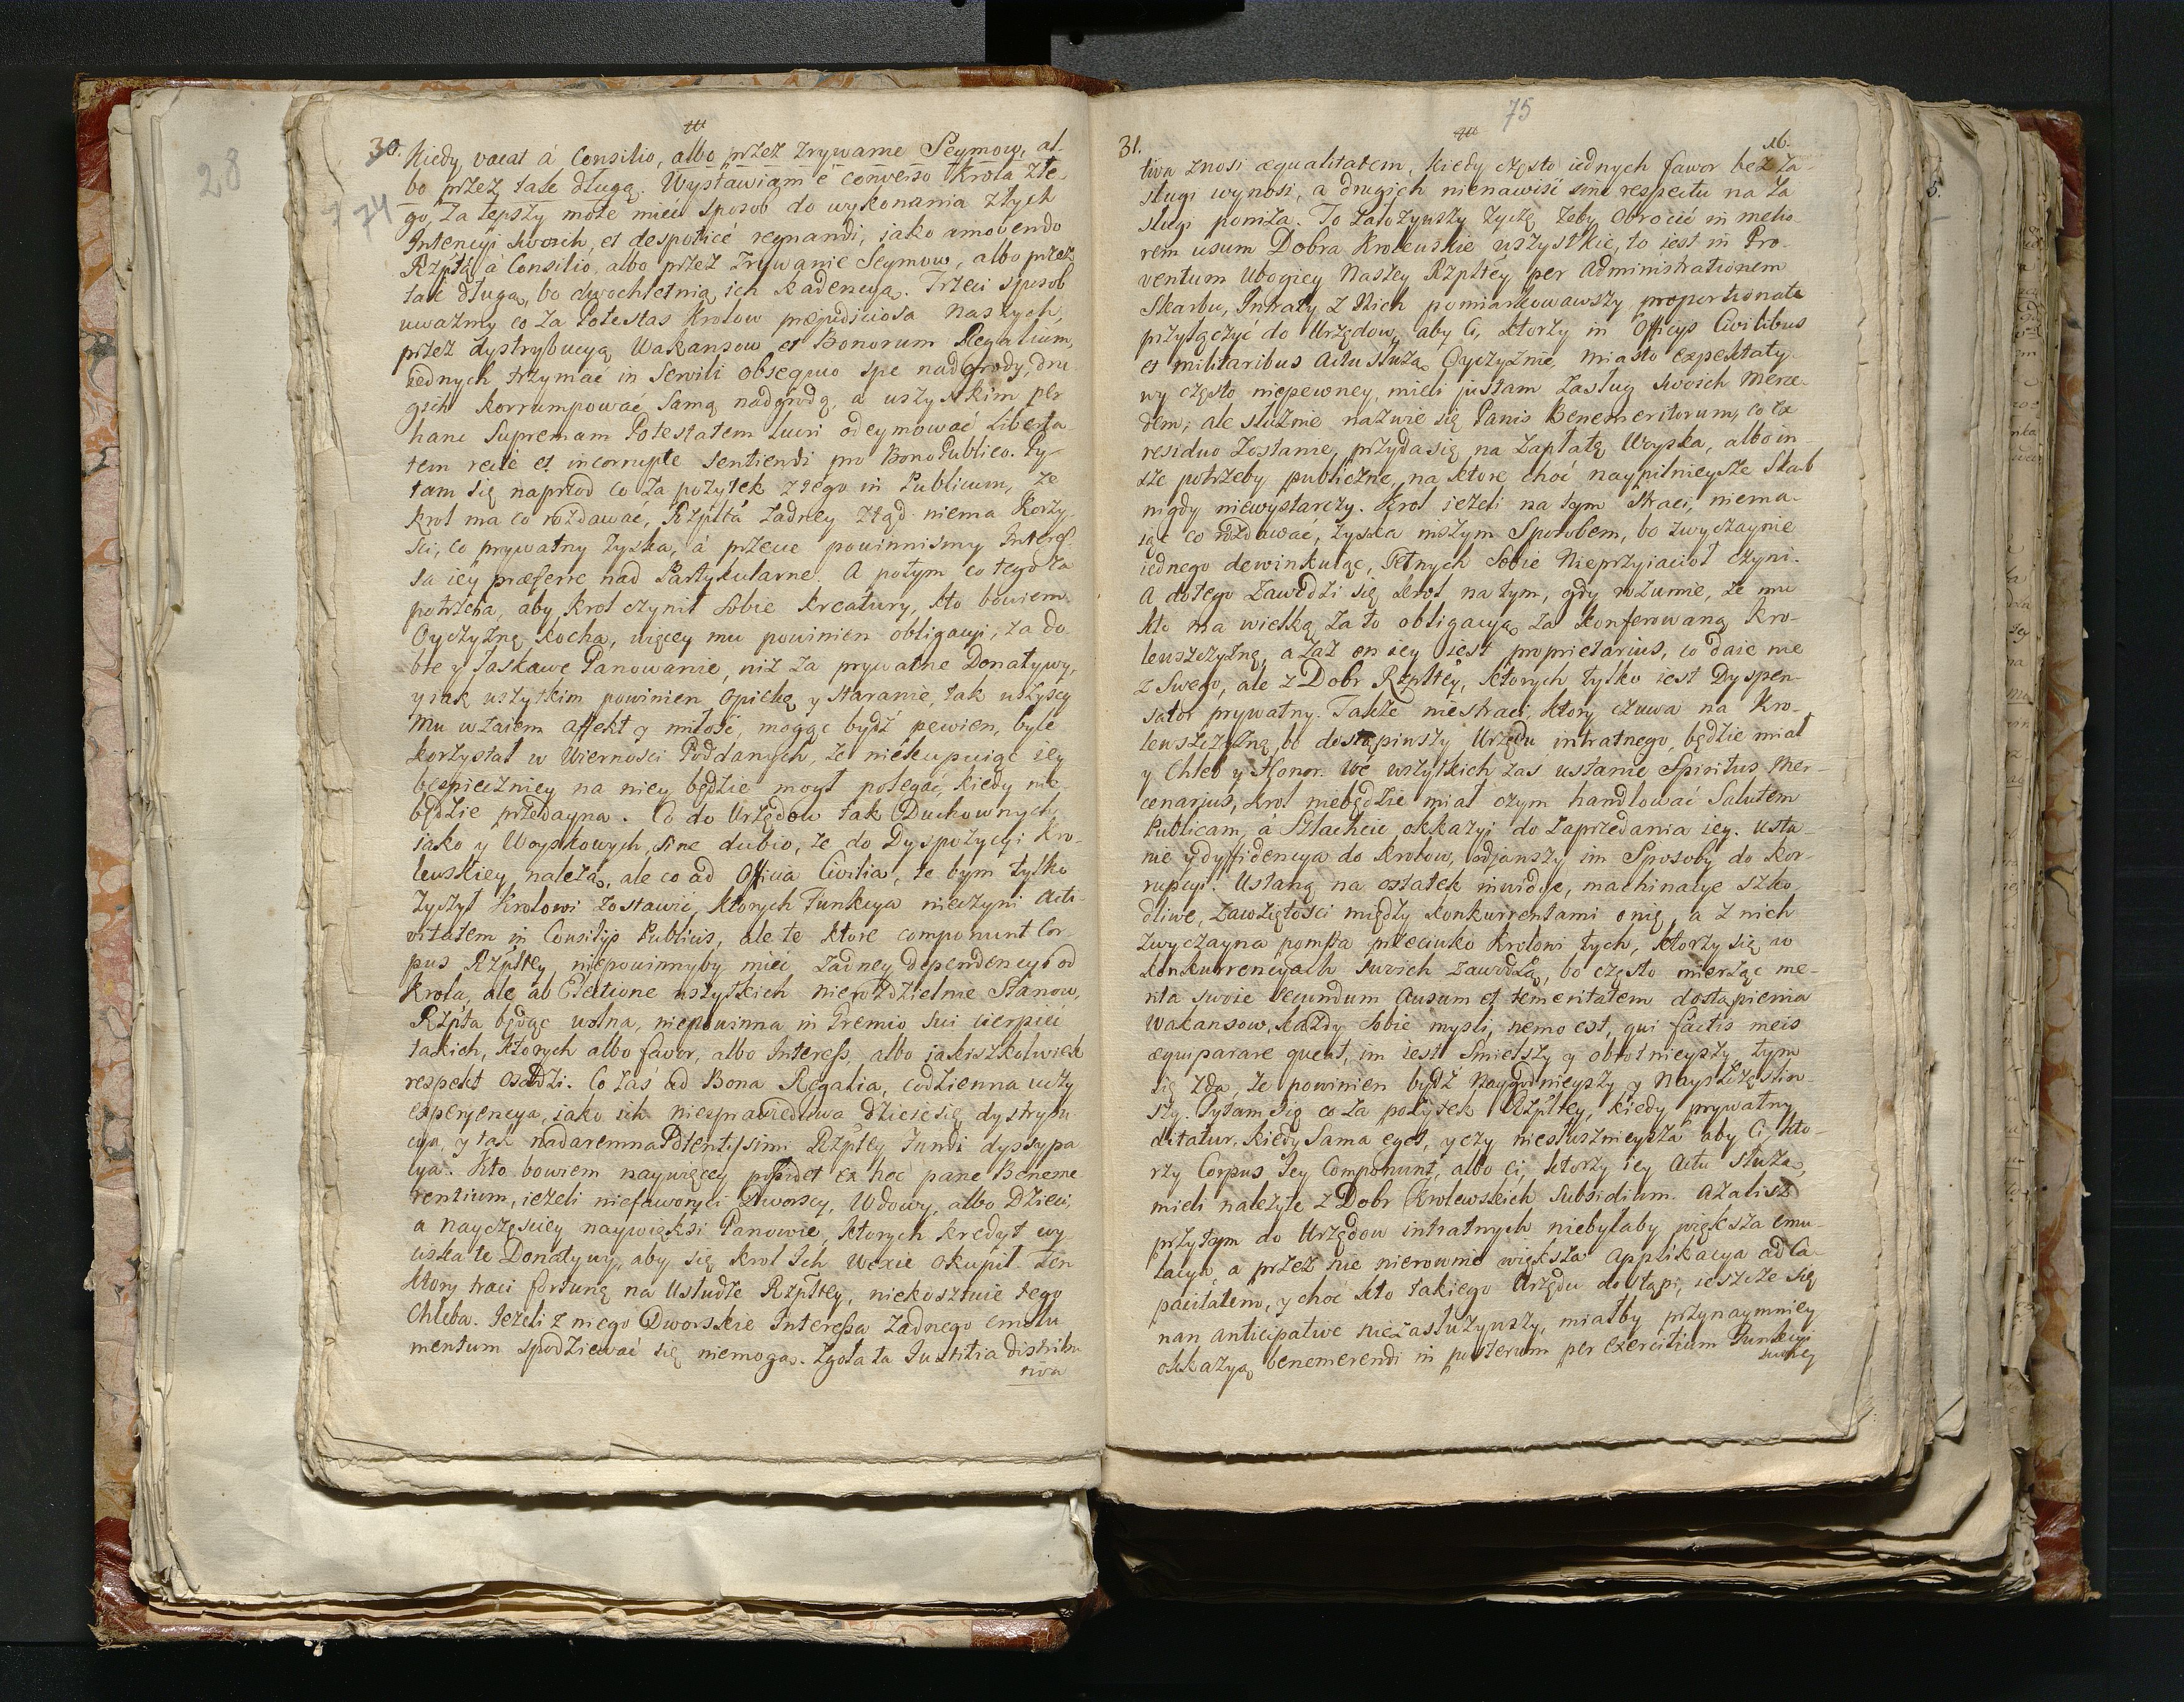 28
74
30.
Kiedy vacat á Consilio, albo przez zrywanie Seymow, al-
bo przez tak długą. Wystawiam é converso Krola złe-
go, za lepszy może mieć sposob do wykonania złych
Intencyi swoich, et despoticé regnandi, jako amovendo
Rzpltą á Consilio, albo przez zrywanie Seymow, albo przez
tak długą, bo dwochletnią ich kadencyą. Trzeci sposob
uważmy co za Potestas Krolow præjudiciosa naszych,
przez dystrybucyą Wakansow et Bonorum Regalium,
iednych trzymać in Servili obsequio spe nadgrody, dru-
gich korrumpować samą nadgrodą, a wszystkim per
hanc Supremam Potestatem lucri odeymować Liberta-
tem recté et incorrupte sentiendi pro Bono Publico. Py-
tam się naprzod co za pożytek z tego in Publicum, że
Krol ma co rozdawać, Rzplta żadney ztąd niema korzy-
ści, co prywatny zyska, á przecie powinnismy Interes-
sa iey præferre nad Partykularne. A potym co tego za
potrzeba, aby Krol czynił sobie kreatury, kto bowiem
Oyczyznę kocha, więcey mu powinien obligacyi, za do-
bre y łaskawe Panowanie, niż za prywatne Donatywy,
y iak wszytkim powinien opiekę y staranie, tak wszyscy
Mu wzaiem affekt y miłość, mogąc bydź pewien, byle
korzystał w Wierności Poddanych, że niekupuiąc iey
bespieczniey na niey będzie mogł polegać, kiedy nie
będzie przedayna. Co do Urzędow tak Duchownych
iako y Woyskowych, sine dubio, że do Dyspozycyi Kro-
lewskiey należą, ale co ad Officia Civilia, te bym tylko
życzył Krolowi zostawić, ktorych Funkcya nieczyni Acti-
vitatem in Consilijs Publicis, ale te ktore componunt Cor-
pus Rzpltey niepowinnyby mieć żadney dependencyi od
Krola, ale ab Electione wszytkich nierozdzielnie Stanow,
Rzplta będąc wolna, niepowinna in Gremio sui cierpieć
takich, ktorych albo favor, albo Interess, albo jakiszkolwiek
respekt osadzi. Co zaś ad Bona Regalia, codzienna uczy
experyencya, iako ich niesprawiedliwa dzieie się dystrybu-
cya, y tak nadaremna Potentissimi Rzpltey Fundi dyssypa-
cya. Kto bowiem naywięcey possidet ex hoc pane Beneme-
rentium, ieżeli niefaworyci Dworscy, Wdowy, albo Dzieci,
a nayczęściey naywięksi Panowie, ktorych kredyt wy-
ciska te Donatywy, aby się Krol Ich Wexie okupił. Ten
ktory traci fortunę na Usłudze Rzpltey, niekosztuie tego
Chleba. Jeżeli z niego Dworskie Interessa żadnego emolu-
mentum spodziewać się niemogą. Zgoła ta Justitia distribu-
tiva
75
31.
16.
tiva znosi æqualitatem, kiedy często iednych favor bez za-
sługi wynosi, a drugich nienawiść sine respectu na za-
sługi poniża. To założywszy życzę żeby obrocić in melio-
rem usum Dobra Krolewskie wszystkie, to iest in Pro-
ventum Ubogiey Naszey Rzpltey per Administrationem
Skarbu, Intraty z Nich pomiarkowawszy proportionate
przyłączyć do Urzędow, aby Ci, ktorzy in Officijs Civilibus
et militaribus Actu służą Oyczyznie, miasto expektaty-
wy często niepewney, mieli justam zasług swoich Merce-
dem, ale słusznie nazwie się Panis Benemeritorum, co ex
residuo zostanie, przyda się na zapłatę Woyska, albo in-
sze potrzeby publiczne, na ktore choć naypilnieysze Skarb
nigdy niewystarczy. Krol ieżeli na tym straci, niema-
iąc co rozdawać, zyska inszym Sposobem, bo zwyczaynie
iednego dewinkuiąc, setnych sobie Nieprzyiacioł czyni.
A dotego zawodzi się Krol na tym, gdy rozumie, że mu
kto ma wielką za to obligacyą, za konferowaną Kro-
lewszczyznę, azaż on iey iest proprietarius, co daie nie
z Swego, ale z Dobr Rzpltey, ktorych tylko iest Dyspen-
sator prywatny. Także niestraci, ktory czuwa na Kro-
lewszczyznę, bo dostąpiwszy Urzędu intratnego, będzie miał
y Chleb y Honor. We wszytkich zas ustanie Spiritus Mer-
cenarius, Krol niebędzie miał czym handlować Salutem
Publicam, á Szlachcic okkazyi do zaprzedania iey. Usta-
nie y dyffidencya do Krolow, odjąwszy im Sposoby do kor-
rupcyi. Ustaną na ostatek inwidye, machinacye szko-
dliwe, zawziętości między konkurrentami o nię, a z nich
zwyczayna pomsta przeciwko Krolowi tych, ktorzy się w
konkurrencyach swoich zawodzą, bo często mierząc me-
rita swoie secundum Ausum et temeritatem dostąpienia
Wakansow, każdy sobie myśli, nemo est, qui factis meis
æquiparare queat, im iest śmielszy y obrotnieyszy, tym
się zda, że powinien bydź naygodnieyszy y nayszczęśliw-
szy. Pytam się co za pożytek Rzpltey, kiedy prywatny
ditatur, kiedy Sama eget, y czy niesłusznieysza aby Ci, kto-
rzy Corpus Jey Componunt, albo ci, ktorzy iey Actu służą,
mieli należyte z Dobr Krolewskich Subsidium. Azalisz
przytym do Urzędow intratnych niebyłaby większa emu-
lacya, a przez nie nierownie większa applikacya ad Ca-
pacitatem, y choć kto takiego Urzędu dostąpi, ieszcze się
nan anticipative niezasłużywszy, miałby przynaymniey
okkazyą benemerendi in posterum per exercitium Funkcyi
swoiey
5.